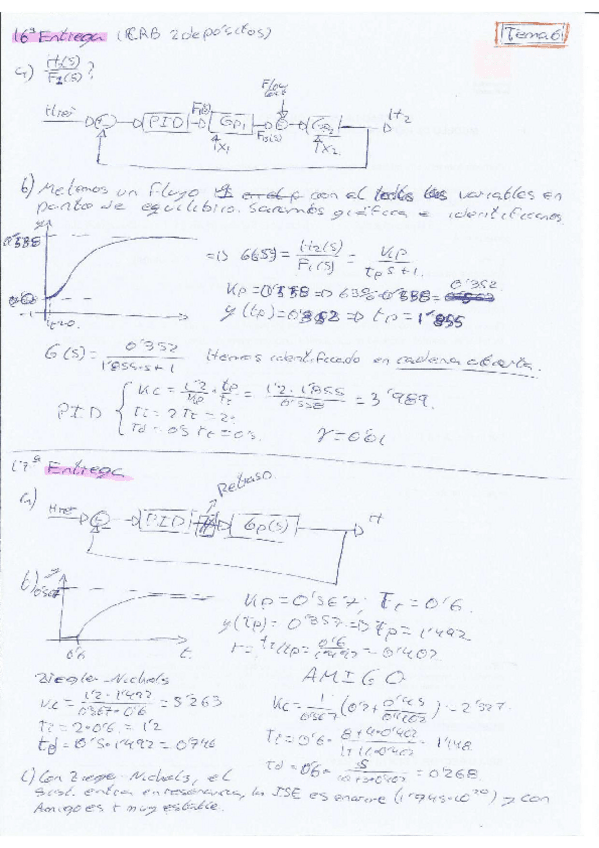 16ª Entrega (RCRB 2 depósitos)
Tema 6
a) H2(s)/F1(s)?
Href PID F1(s) Gp1 F12(s) Gp2 H2
X1 X2
b) Metemos un flujo con al variables en
punto de equilibrio. Sacamos gráfica e identificamos
0'558
=> G(s) = H2(s)/F1(s) = Kp/tp s+1
Kp = 0'558 => 63% 0'558 = 0'352
y(tp) = 0'352 => tp = 1'855
t=0
G(s) = 0'352/1'855·s+1 Hemos identificado en cadena abierta.
PID
Kc = 1'2/Kp · tp/tr = 1'2·1'855/0'558 = 3'989.
Ti = 2 Tr = 2.
Td = 0'5 Tr = 0'5. γ = 0'01
17ª Entrega
Retraso
a) Href PID Gp(s) H
b) 0'567
Kp = 0'567; Tr = 0'6.
y(tp) = 0'357 => tp = 1'492
r = tr/tp = 0'6/1'492 = 0'402
0'6 t.
Ziegler-Nichols
Kc = 1'2·1'492/0'567·0'6 = 5'263
Ti = 2·0'6 = 1'2
td = 0'5·1'492 = 0'746
AMIGO
Kc = 1/0'567 (0'2 + 0'45/0'402) = 2'327.
Ti = 0'6· 8+4·0'402/1+11·0'402 = 1'148
Td = 0'6 = 0'268
c) Con Ziegler-Nichols, el
sist. entra en resonancia, la ISE es enorme (1'745·10²⁰) y con
Amigo es + muy estable.